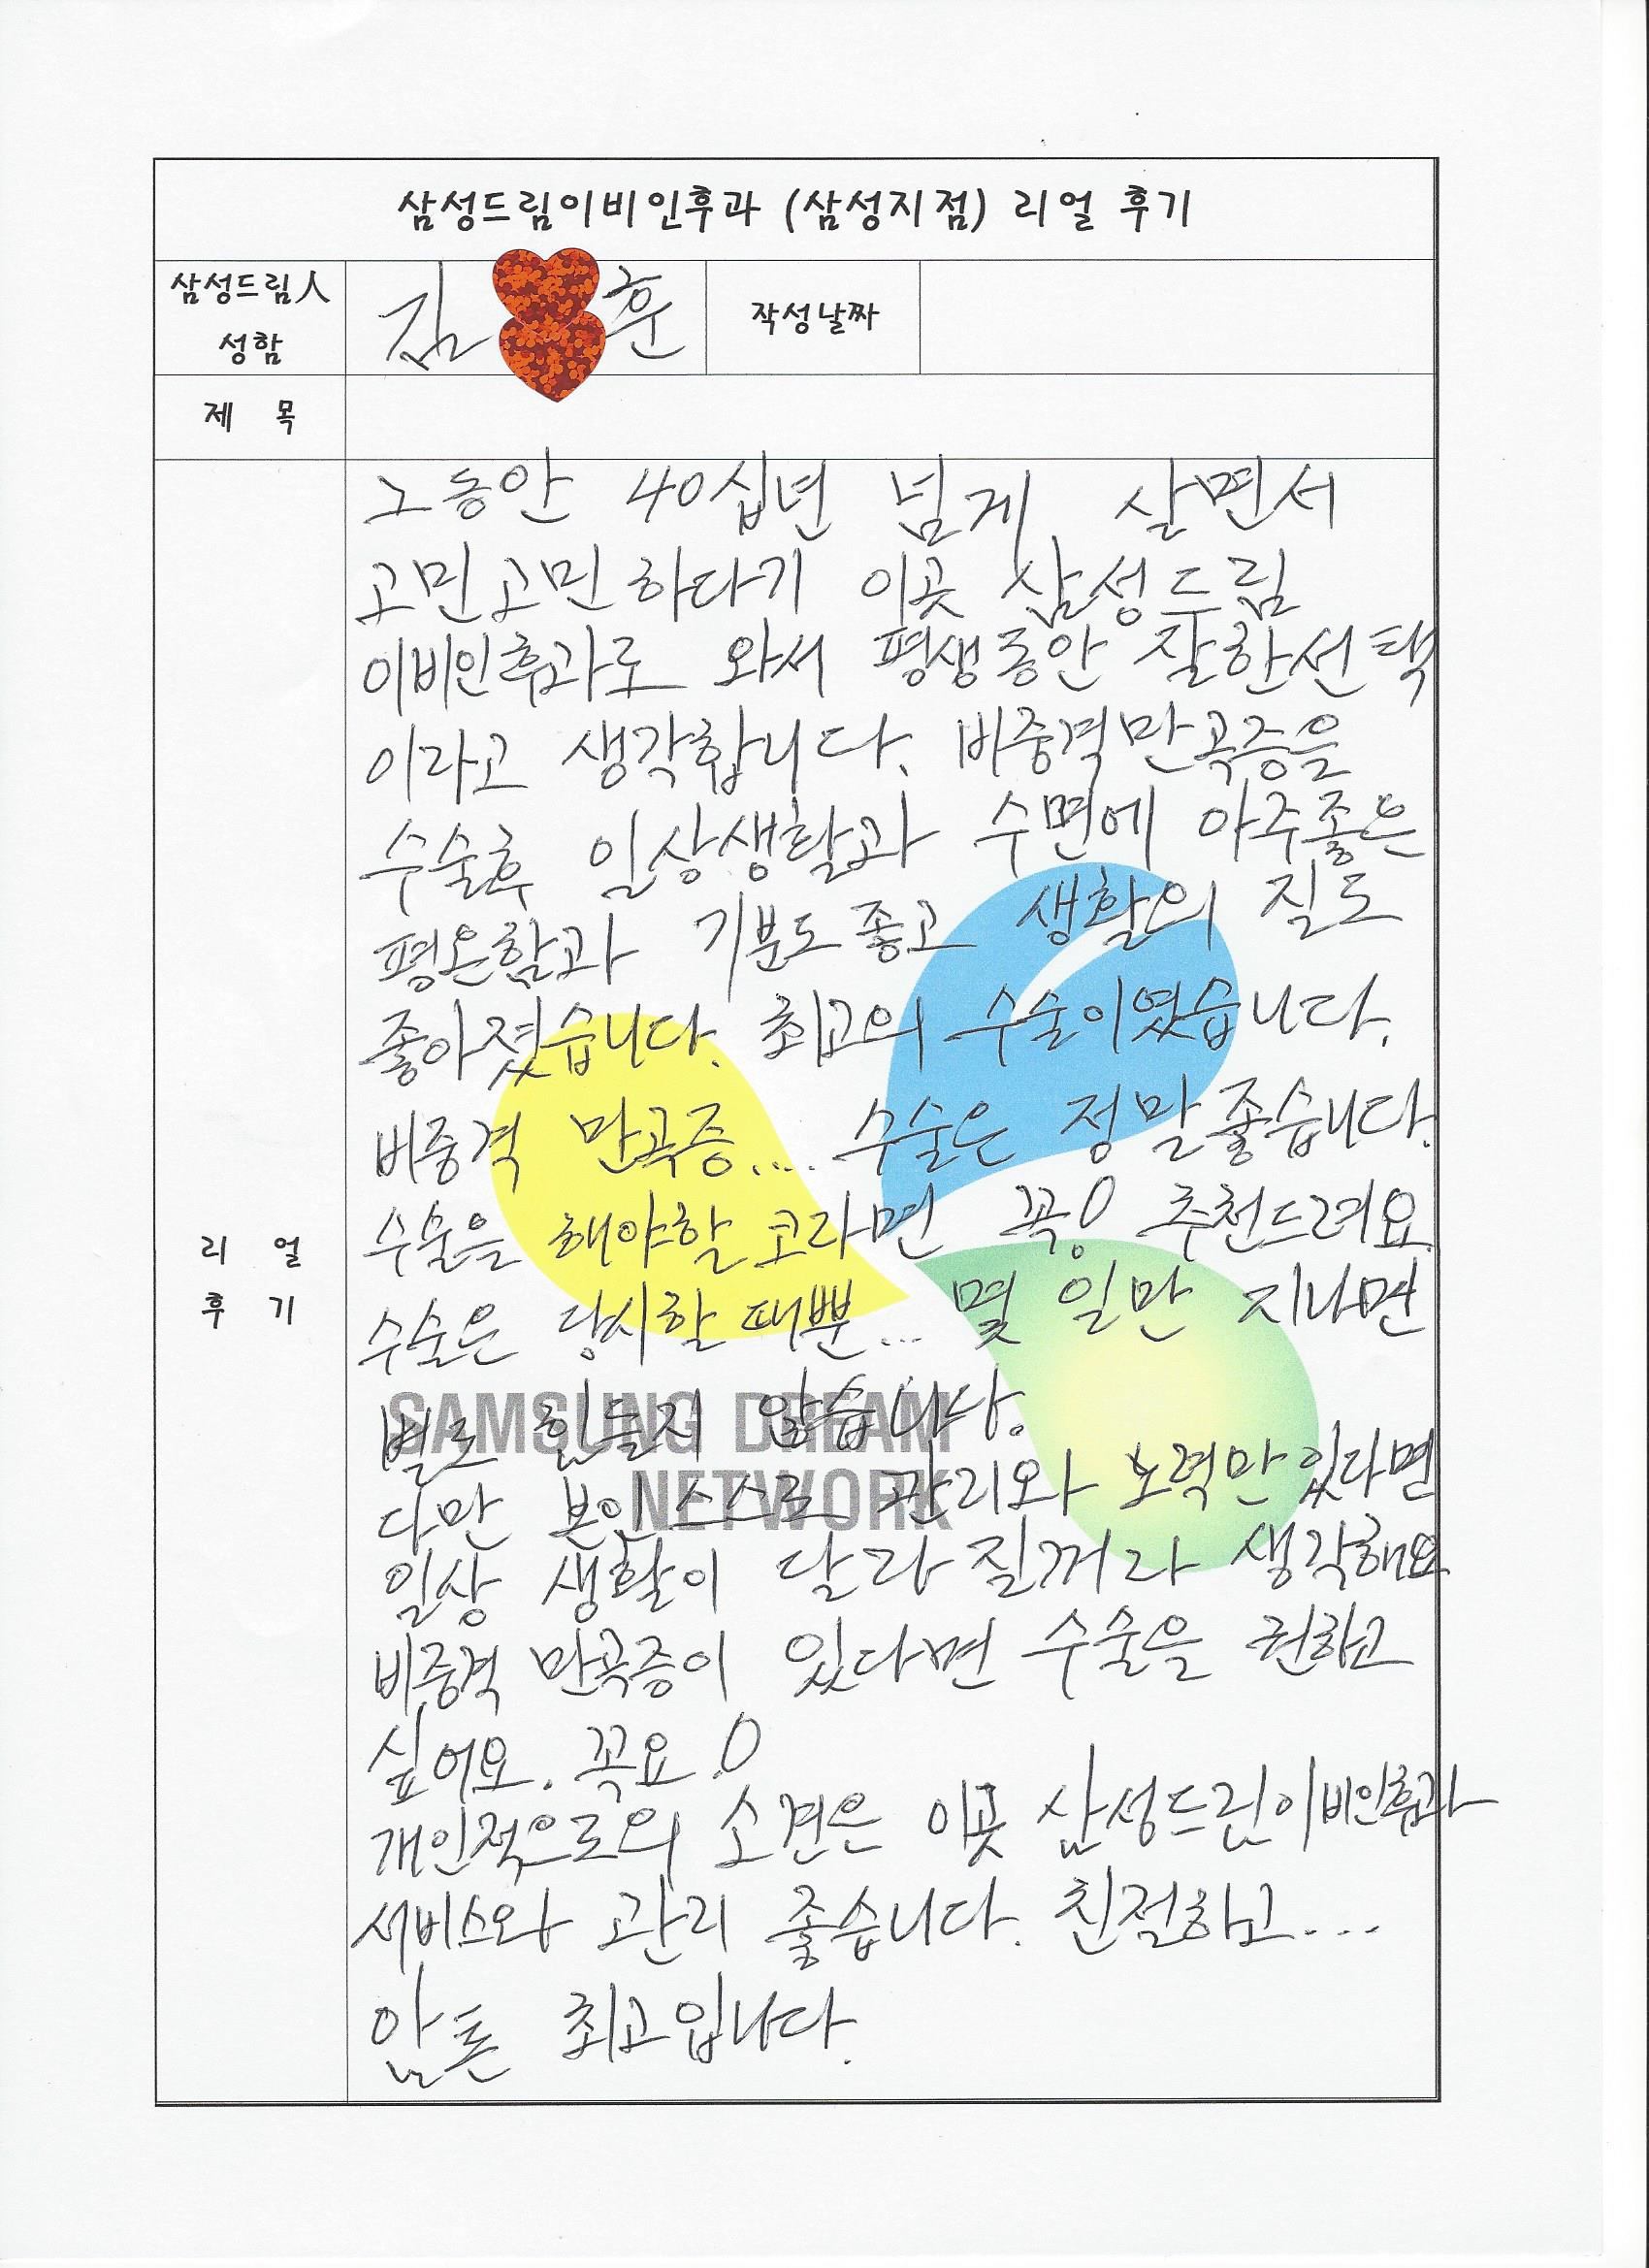 삼성드림이비인후과 (삼성지점) 리얼 후기
삼성드림人
성함
김 훈
작성날짜
제 목
그동안 40십년 넘게 살면서
고민고민하다기 이곳 삼성드림
이비인후과로 와서 평생동안 잘한선택
이라고 생각합니다. 비중격만곡증을
수술후 일상생활과 수면에 아주좋은
평온함과 기분도좋고 생활의 질도
좋아졌습니다. 최고의 수술이였습니다.
비중격 만곡증.... 수술은 정말좋습니다.
수술을 해야할 코라면 꼭! 추천드려요.
수술은 당시할 때뿐... 몇 일만 지나면
별로 힘들지 않습니다.
다만 본인스스로 관리와 노력만있다면
일상 생활이 달라질꺼라 생각해요
비중격 만곡증이 있다면 수술을 권하고
싶어요. 꼭요!
개인적으로의 소견은 이곳 삼성드림이비인후과
서비스와 관리 좋습니다. 친절하고...
암튼 최고입니다.
리 얼
후 기
SAMSUNG DREAM
NETWORK